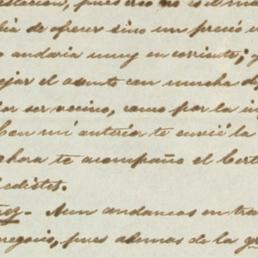 estacion, pues eso no es de ma
bia de ofrecer sino un precio 
o andaria muy en corriente; y
ejar el asunto con mucha de
or ser vecino, como por la in
Con mi anterior te envié la
ahora te acompaño el Cert
edistes.
rez. Aun andamos en tra
negocio, pues ademas de la gr